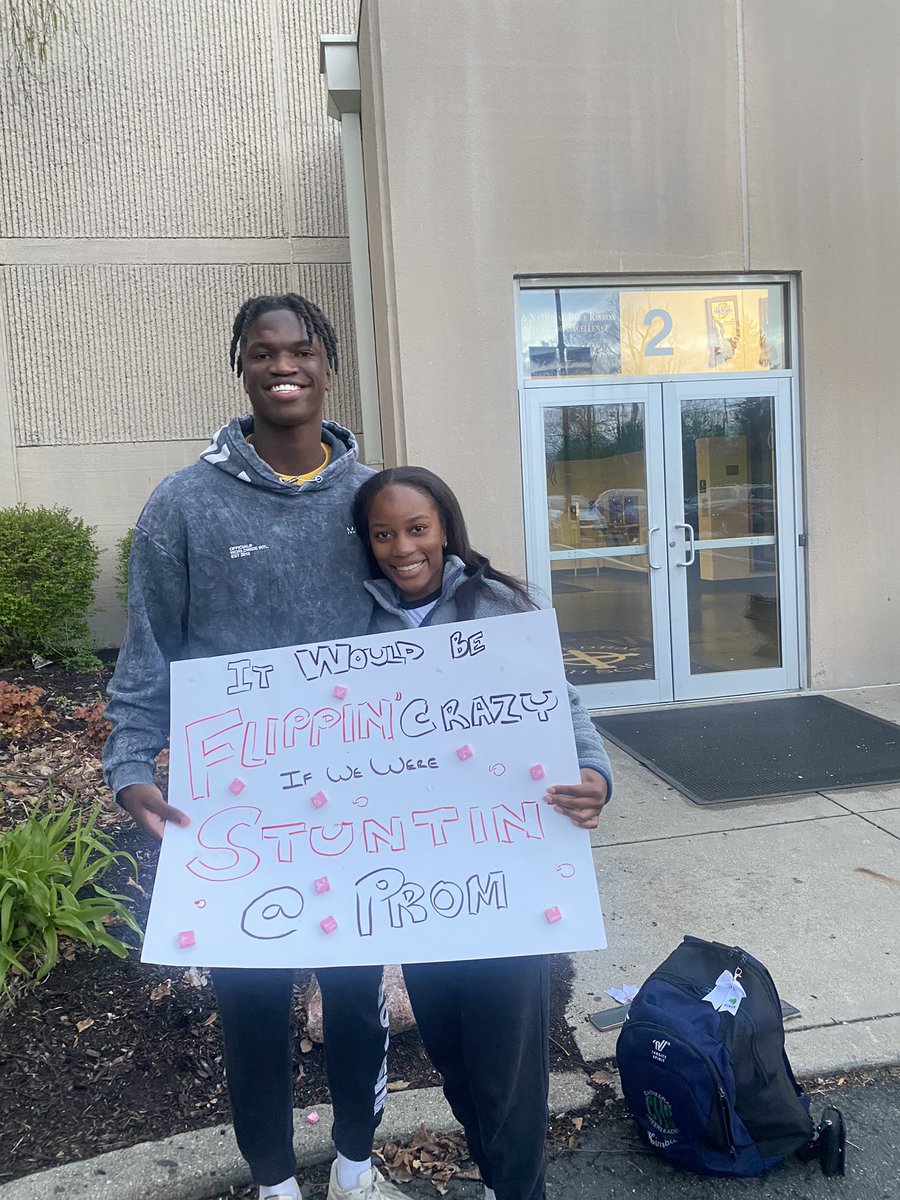 A National Blue Ribbon
School of Excellence
2
OFFICIALS
WORLDWIDE INTL.
EST 2013
IT WOULD BE
FLIPPIN' CRAZY
IF WE WERE
STUNTIN
@ PROM
VARSITY
SPIRIT